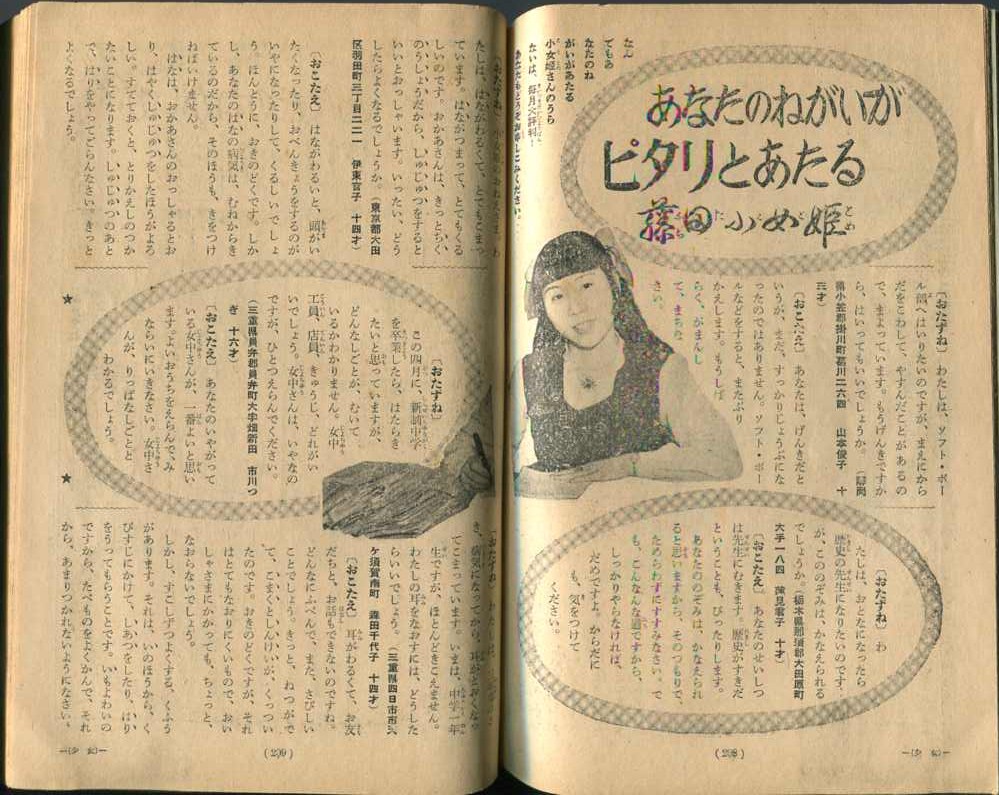 あなたのねがいが
ピタリとあたる
藤田小女姫
なん
でもあ
なたのね
がいがあたる
小女姫さんのうら
ないは、毎月大評判!
あなたもどうぞお申しこみください。
〔おたずね〕 わたしは、ソフト・ボー
ル部へはいりたいのですが、まえにから
だをこわして、やすんだことがあるの
で、まよっています。もうげんきですか
ら、はいってもいいでしょうか。(静岡
県小笠郡掛川町葛川二六四 山本俊子 十
三才)
〔おこたえ〕 あなたは、げんきだと
いうが、まだ、すっかりじょうぶにな
ったのではありません。ソフト・ボー
ルなどをすると、またぶり
かえします。もうしば
らく、がまんし
て、まちな
さい。
〔おたずね〕 わ
たしは、おとなになったら
歴史の先生になりたいのです
が、こののぞみは、かなえられる
でしょうか。(栃木県那須郡大田原町
大手一八四 君子 十才)
〔おこたえ〕 あなたのせいしつ
は先生にむきます。歴史がすきだ
ということも、ぴったりします。
あなたののぞみは、かなえられ
ると思いますから、そのつもりで、
ためらわずにすすみなさい。で
も、こんなんな道ですから、
しっかりやらなければ、
だめですよ。からだに
も、気をつけて
ください。
(298)
〔おたずね〕 小女姫のおねえさま。わ
たしは、はながわるくて、とてもこまっ
ています。はながつまって、とてもくる
しいのです。おかあさんは、きっとちく
のうしょうだから、しゅじゅつをすると
いいとおっしゃいます。いったい、どう
したらよくなるでしょうか。(東京都大田
区羽田町三丁目二二一 伊東官子 十四才)
〔おこたえ〕 はながわるいと、頭がい
たくなったり、おべんきょうをするのが
いやになったりして、くるしいでしょ
う。ほんとうに、おきのどくです。しか
し、あなたのはなの病気は、むねからき
ているのだから、そのほうも、きをつけ
ねばいけません。
はなは、おかあさんのおっしゃるとお
り、はやくしゅじゅつをしたほうがよろ
しい。すてておくと、とりかえしのつか
ないことになります。しゅじゅつのあと
で、はりをやってごらんなさい。きっと
よくなるでしょう。
〔おたずね〕
この四月に、新制中学
を卒業したら、はたらき
たいと思っていますが、
どんなしごとが、むいて
いるかわかりません。女中
工員、店員、きゅうじ、どれがい
いでしょう。女中さんは、いやなの
ですが、ひとつえらんでください。
(三重県員弁郡員弁町大字畑新田 市川つ
ぎ 十六才)
〔おこたえ〕 あなたのいやがって
いる女中さんが、一番よいと思い
ます。よいおうちをえらんで、み
ならいにいきなさい。女中さ
んが、りっぱなしごとと
わかるでしょう。
★
★
き、病気になってから、耳がとおくなっ
てこまっています。いまは、中学一年
生ですが、ほとんどきこえません。
わたしの耳をなおすには、どうした
らいいでしょう。(三重県四日市市
ケ須賀南町 森田千代子 十四才)
〔おこたえ〕 耳がわるくて、お友
だちと、お話もできないのですね。
どんなにふべんで、また、さびしい
ことでしょう。きっと、ねつがで
て、こまくとしんけいが、くっつい
たのです。おきのどくですが、それ
はとてもなおりにくいもので、おい
しゃさまにかかっても、ちょっと、
なおらないでしょう。
しかし、すこしずつよくする、くふう
があります。それは、いのほうから、く
びすじにかけて、しあつをしたり、はり
をうってもらうことです。いもよわいの
ですから、たべものをよくかんで、それ
から、あまりつかれないようになさい。
(299)